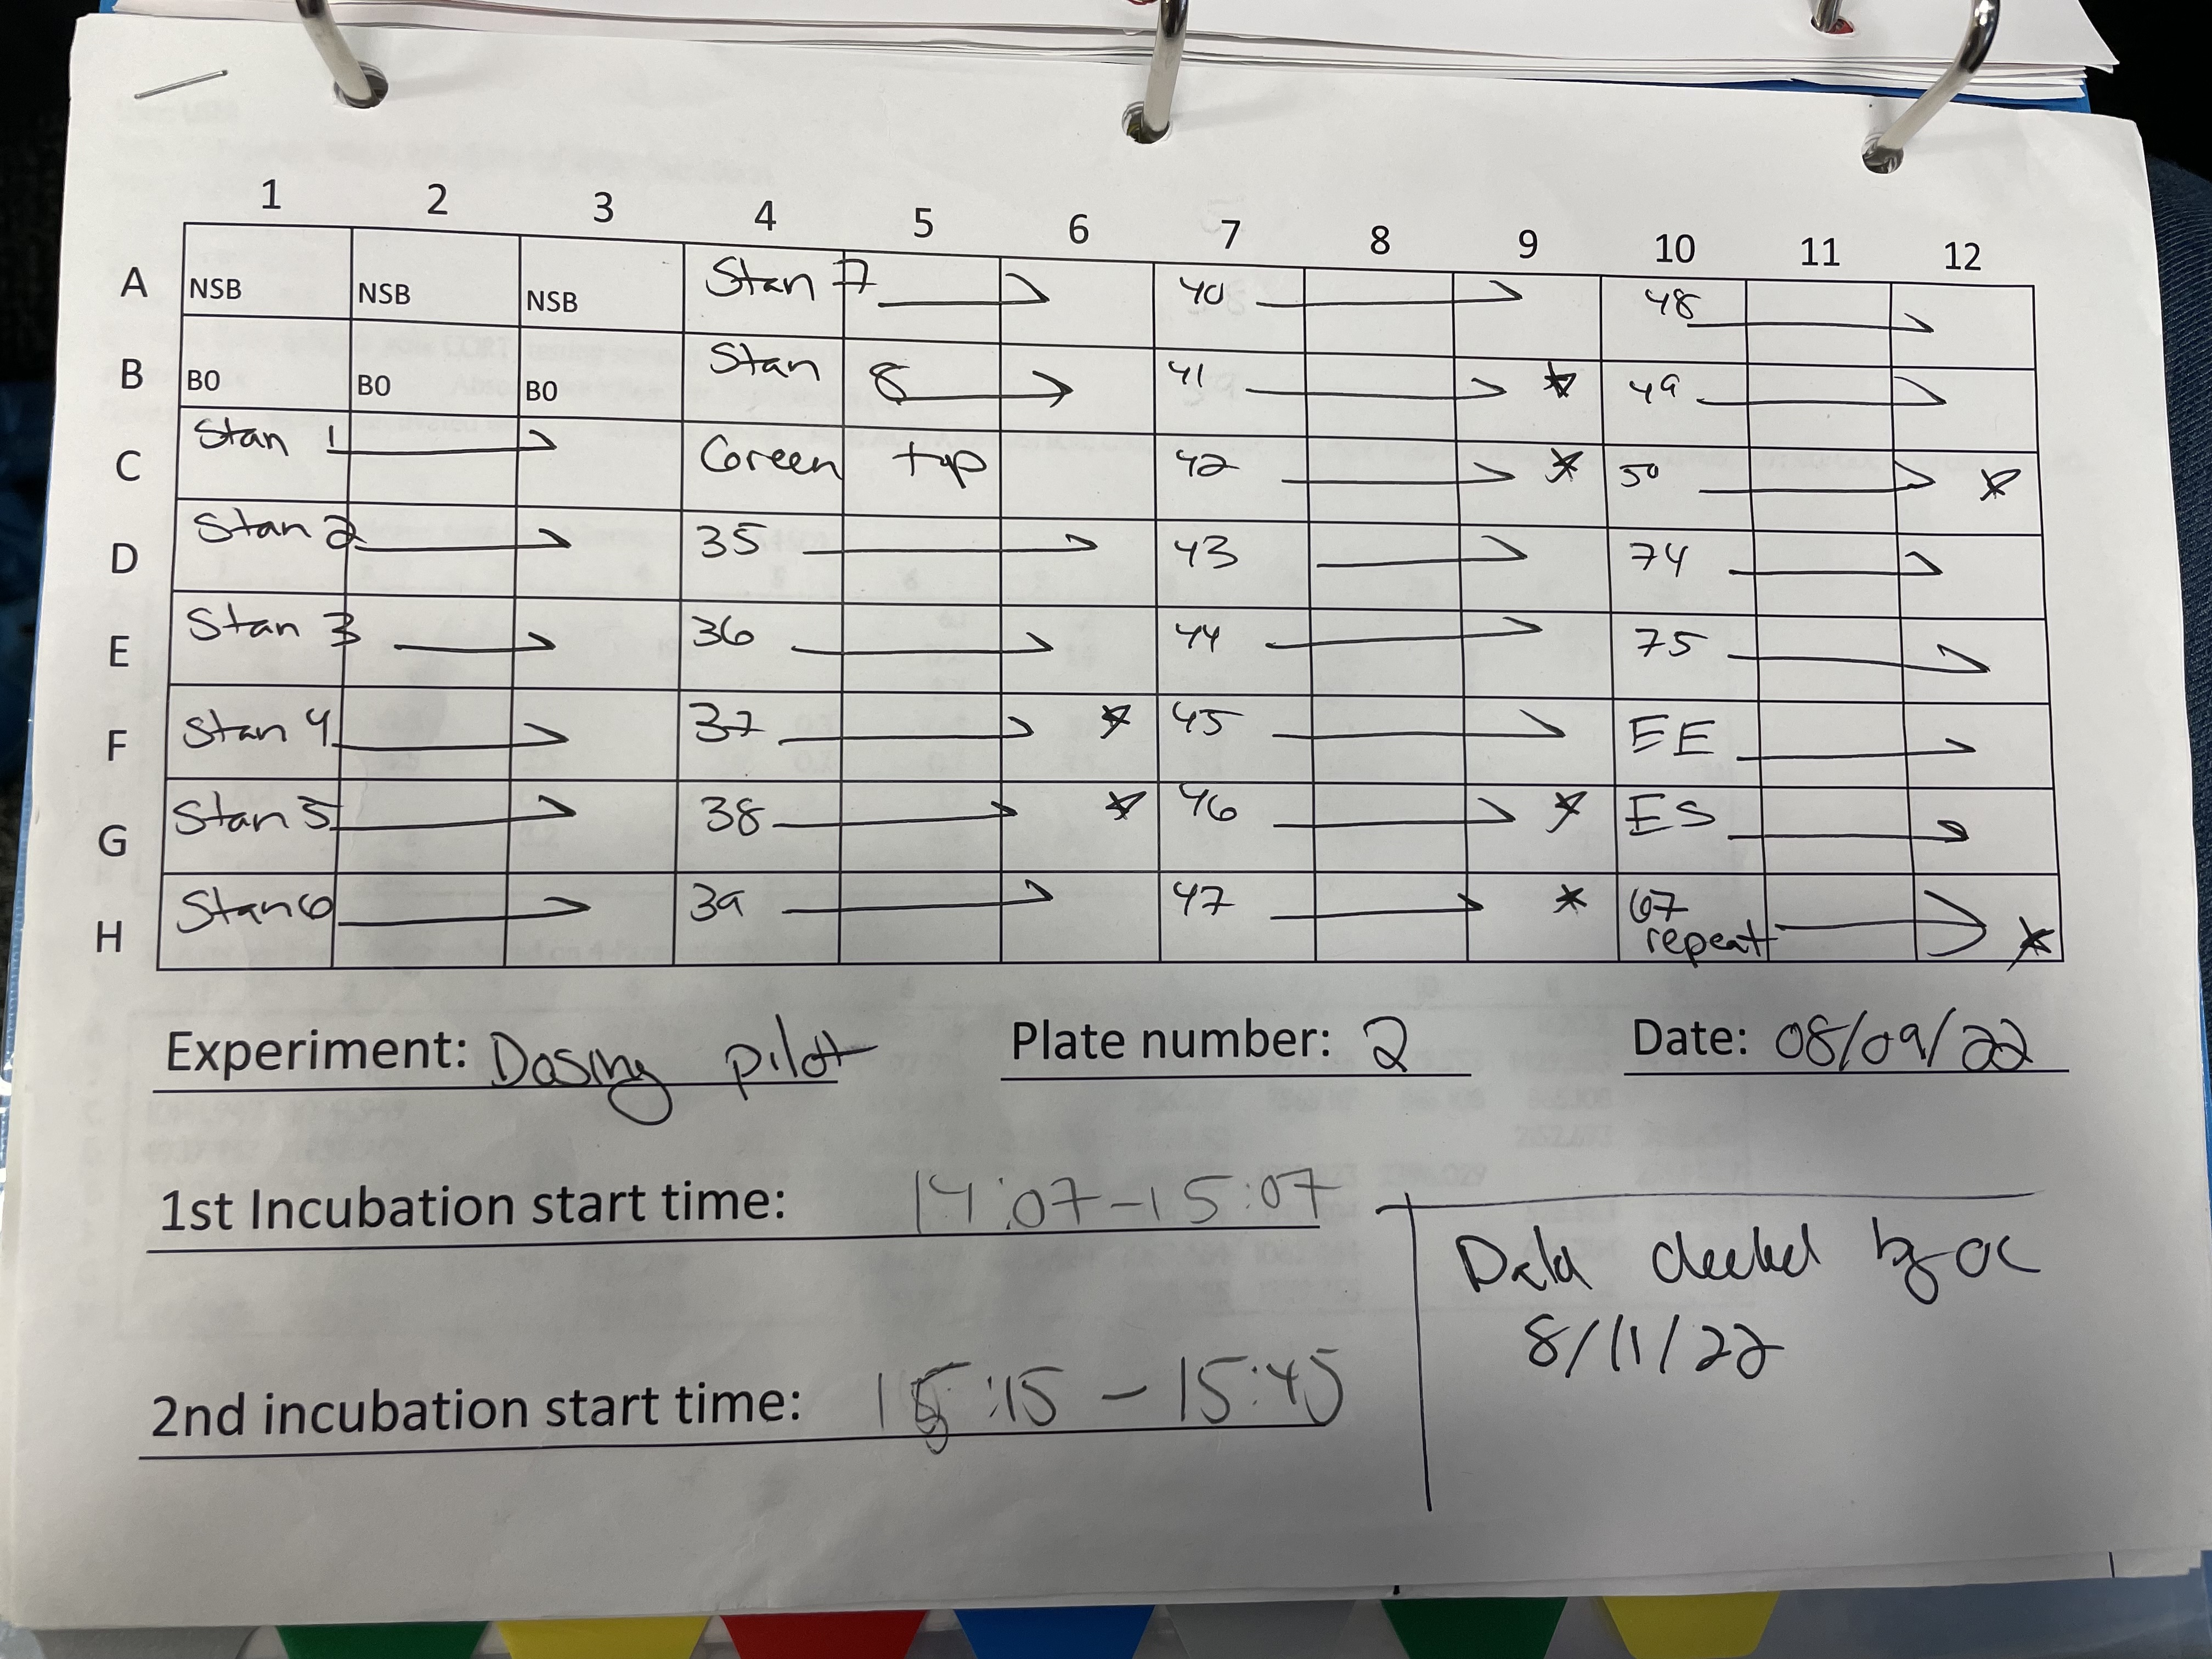 1 2 3 4 5 6 7 8 9 10 11 12
A NSB NSB NSB Stan 7 40 48
B B0 B0 B0 Stan 8 41 * 49
C Stan 1 Green top 42 * 50 *
D Stan 2 35 43 74
E Stan 3 36 44 75
F Stan 4 37 * 45 EE
G Stan 5 38 * 46 * ES
H Stan 6 39 47 * 67 repeat *
Experiment: Dosing pilot Plate number: 2 Date: 08/09/22
1st Incubation start time: 14:07-15:07
Data checked by
8/11/22
2nd incubation start time: 15:15 - 15:45